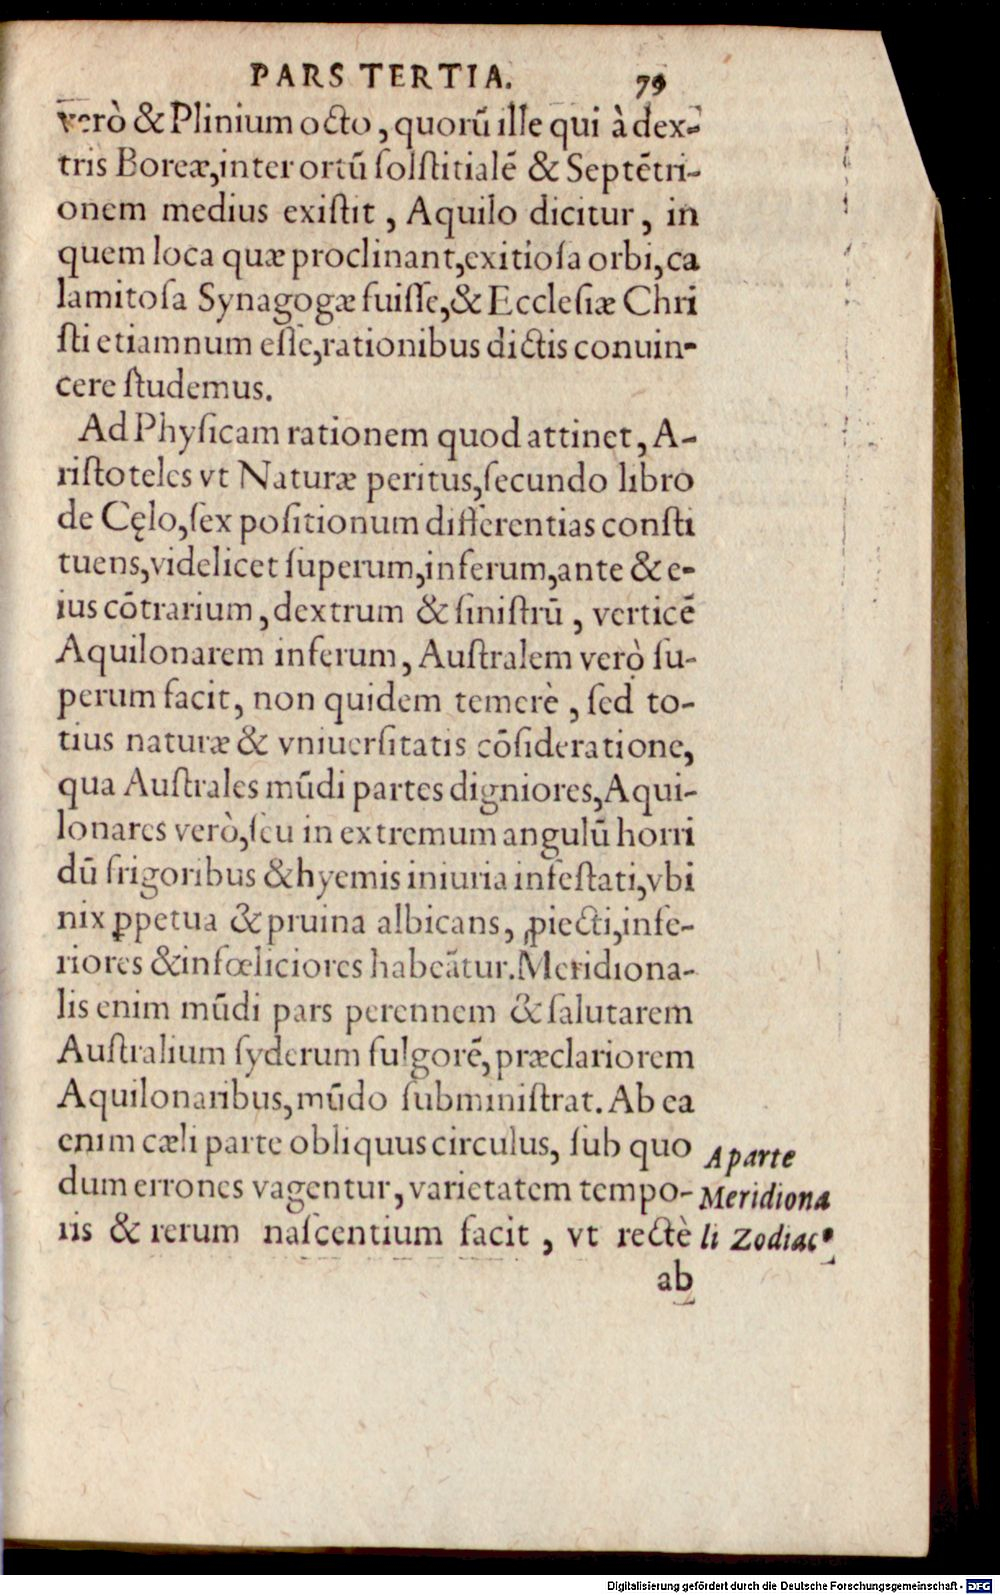 PARS TERTIA. 79
verò & Plinium octo, quorũ ille qui à dex-
tris Boreæ, inter ortũ ſolſtitialẽ & Septẽtri-
onem medius exiſtit, Aquilo dicitur, in
quem loca quæ proclinant, exitioſa orbi, ca
lamitoſa Synagogæ fuiſſe, & Eccleſiæ Chri
ſti etiamnum eſſe, rationibus dictis conuin-
cere ſtudemus.
Ad Phyſicam rationem quod attinet, A-
riſtoteles vt Naturæ peritus, ſecundo libro
de Cęlo, ſex poſitionum differentias conſti
tuens, videlicet ſuperum, inferum, ante & e-
ius cõtrarium, dextrum & ſiniſtrũ, verticẽ
Aquilonarem inferum, Auſtralem verò ſu-
perum facit, non quidem temerè, ſed to-
tius naturæ & vniuerſitatis cõſideratione,
qua Auſtrales mũdi partes digniores, Aqui-
lonares verò, ſeu in extremum angulũ horri
dũ frigoribus & hyemis iniuria infeſtati, vbi
nix ꝑpetua & pruina albicans, ꝓiecti, infe-
riores & infœliciores habeãtur. Meridiona-
lis enim mũdi pars perennem & ſalutarem
Auſtralium ſyderum fulgorẽ, præclariorem
Aquilonaribus, mũdo ſubminiſtrat. Ab ea
enim cæli parte obliquus circulus, ſub quo
dum errones vagentur, varietatem tempo-
ris & rerum naſcentium facit, vt rectè
ab
A parte
Meridiona
li Zodiacꝰ
Digitalisierung gefördert durch die Deutsche Forschungsgemeinschaft - DFG